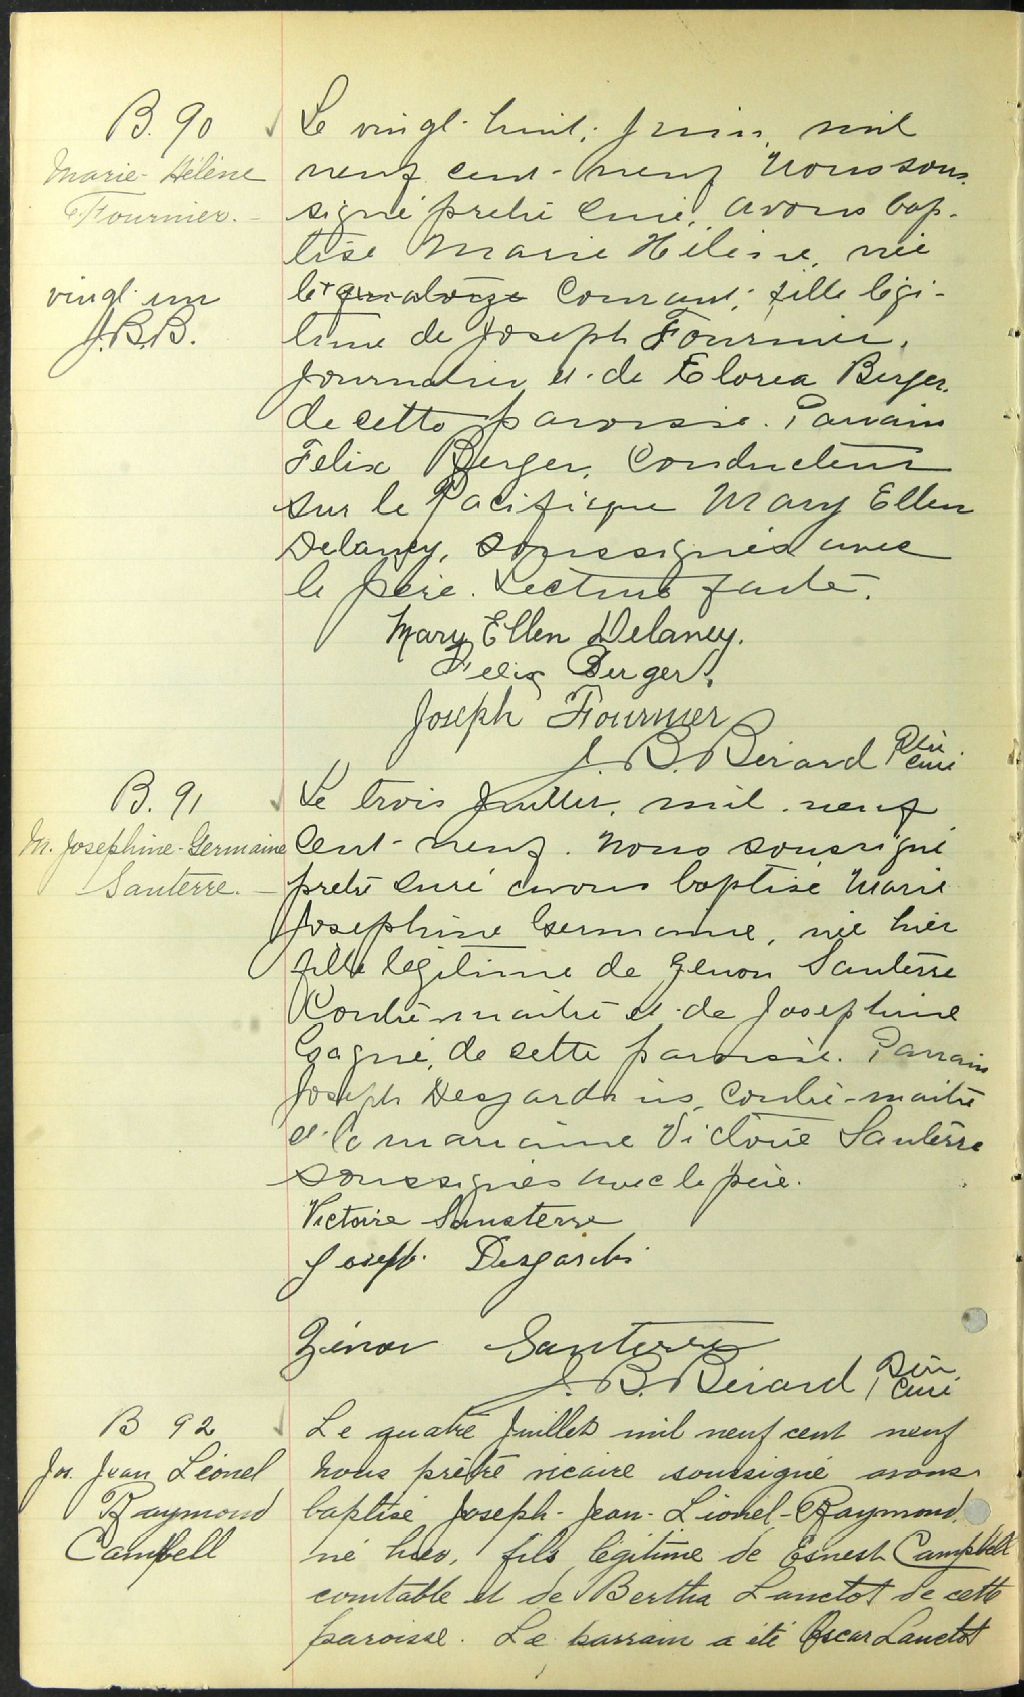 B. 90
Marie-Hélène
Fournier.
vingt un
J.B.B.
Le vingt-huit, Juin, mil
neuf cent-neuf Nous sous
signé prêtre curé, avons bap-
tisé Marie Hélène, née
le quatorze courant, fille légi-
time de Joseph Fournier,
journalier et de Elorea Berger
de cette paroisse. Parrain
Felix Berger, Conducteur
sur le Pacifique Mary Ellen
Delaney, soussignés avec
le père. Lecture faite.
Mary Ellen Delaney.
Felix Berger.
Joseph Fournier
J. B. Bérard Ptre
curé
B. 91
M. Josephine-Germaine
Santerre.
Le trois Juillet, mil neuf
cent-neuf. Nous soussigné
prêtre curé avons baptisé Marie
Josephine Germaine, née hier
fille légitime de Zénon Santerre
Contre-maitre et de Josephine
Gagné, de cette paroisse. Parrain
Joseph Desjardins, Contre-maitre
et la marraine Victoire Santerre
soussignés avec le père.
Victoire Sansterre
Joseph Desjardins
Zénon Santerre
J. B. Bérard Ptre
curé
B 92
Jos. Jean Léonel
Raymond
Campbell
Le quatre Juillet mil neuf cent neuf
Nous prêtre vicaire soussigné avons
baptisé Joseph-Jean-Lionel-Raymond,
né hier, fils légitime de Ernest Campbell
comtable et de Bertha Lanctot de cette
paroisse. Le parrain a été Oscar Lanctot